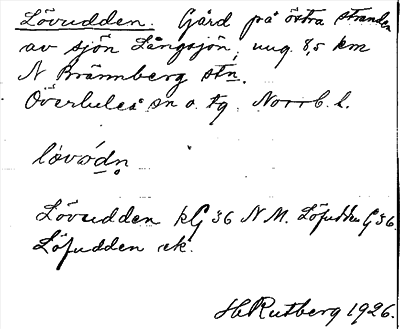 Lövudden. Gård på östra stranden
av sjön Långsjön, ung. 8,5 km
N Brännberg stn.
Överluleå sn o. tg. Norrb. l.
løvødn̥
Lövudden kG 36 N M. Löfudden G 36.
Löfudden ek.
H Rutberg 1926.